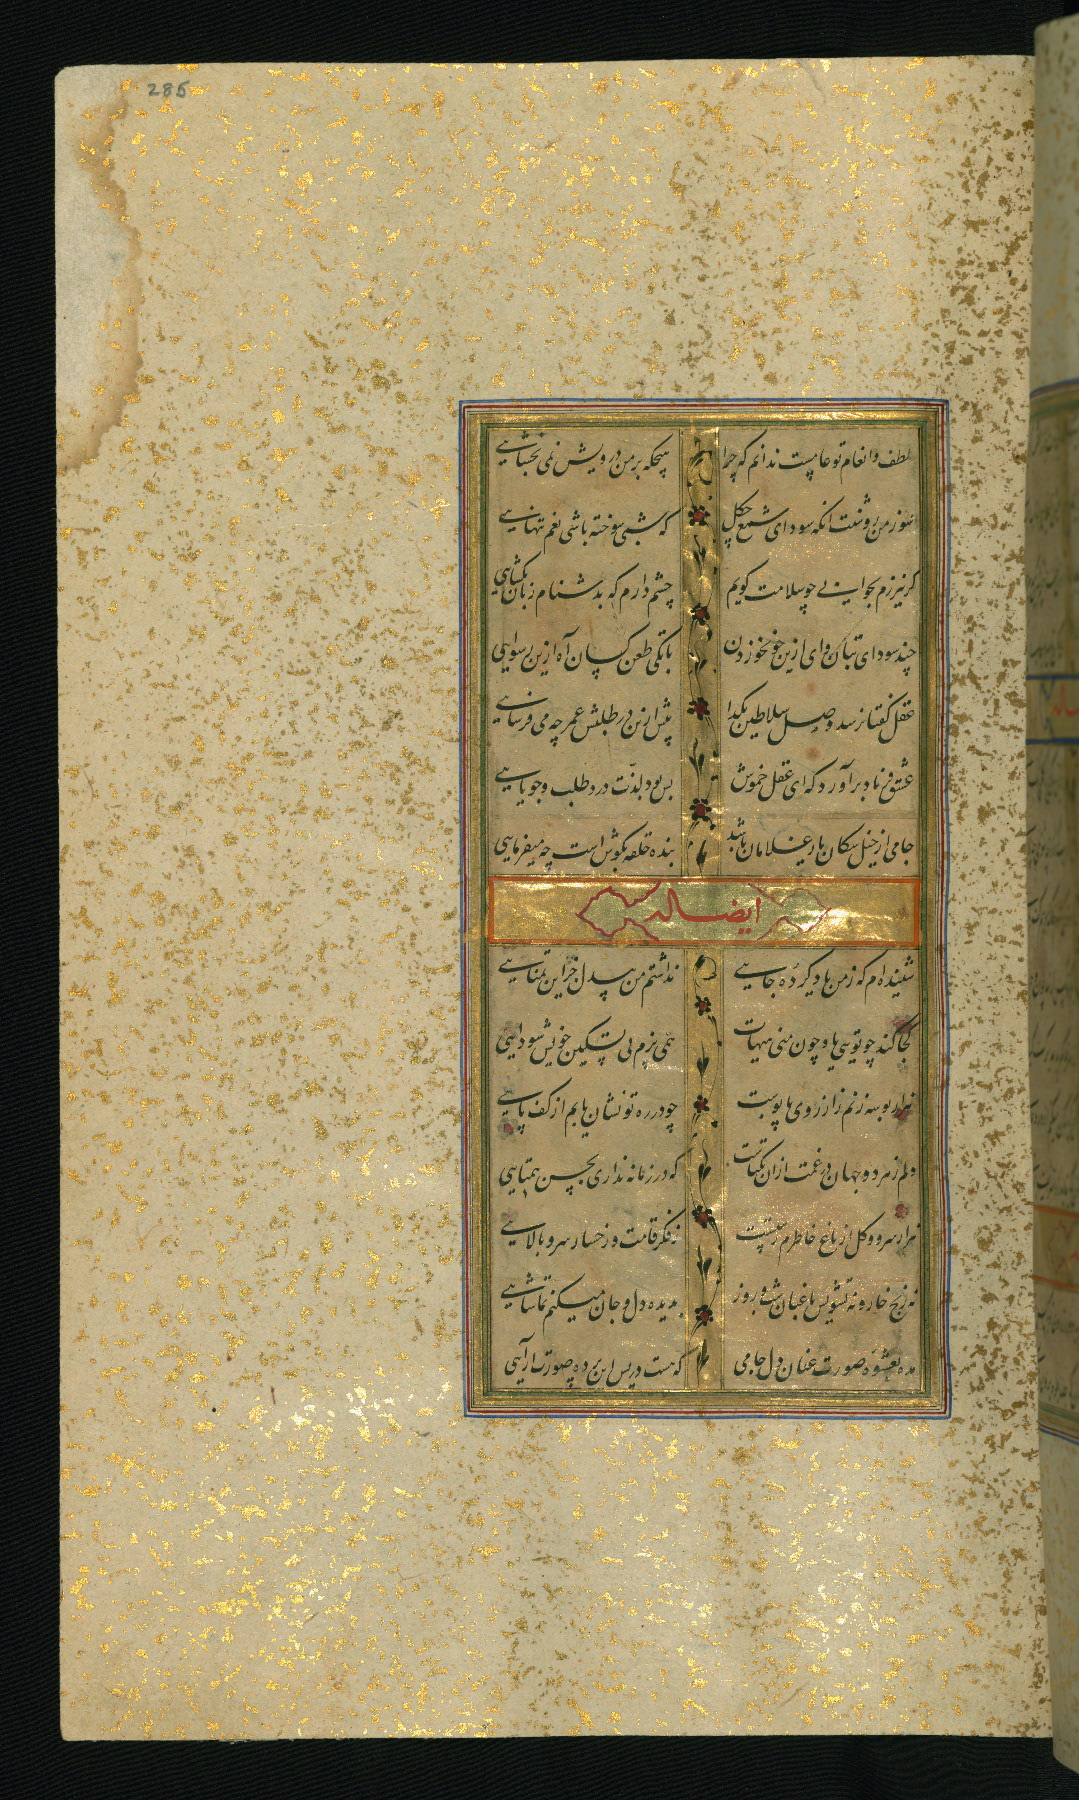 285
لطف و انعام تو عامست ندانم که چرا هیچکه بر من درویش نمی بخشایی
سوز من روشنت آنکه سودای شمع چکل که شبی سوخته باشی بغم تنهایی
گر نیرزم بجوابی چو سلامت گویم چشم دارم که بدشنام زبان بگشایی
چند سودای بتان وای ازین خون خوردن تا بکی طعن کسان آه ازین رسوایی
عقل گفتا نرسد وصل سلاطین بگدا بیش ازین در طلبش عمر چه می فرسایی
عشق فریاد برآورد که ای عقل خموش بس بود لذت درد طلب و جویایی
جامی از خیل سکان یا ز غلامان باشد بنده حلقه بگوش است چه میفرمایی
ایضا له
شنیده‌ام که ز من یاد کرده جایی نداشتم من بیدل جز این تمنایی
کجا کند چو تویی یاد چون منی هیهات همی پزم پی تسکین خویش سودایی
هزار بوسه زنم زآرزوی پابوست چو در ره تو نشان یابم از کف پایی
دلم ز هر دو جهان در غمت ازان یکتاست که در زمانه نداری بحسن همتایی
هزار سرو و گل از باغ خاطرم رستست ز فکر قامت و رخسار سرو بالایی
نه رنج خار و نه تشویش باغبان شب و روز بدیده دل و جان میکنم تماشایی
مده بعشوه صورت عنان دل جامی که هست در پس این پرده صورت آرایی